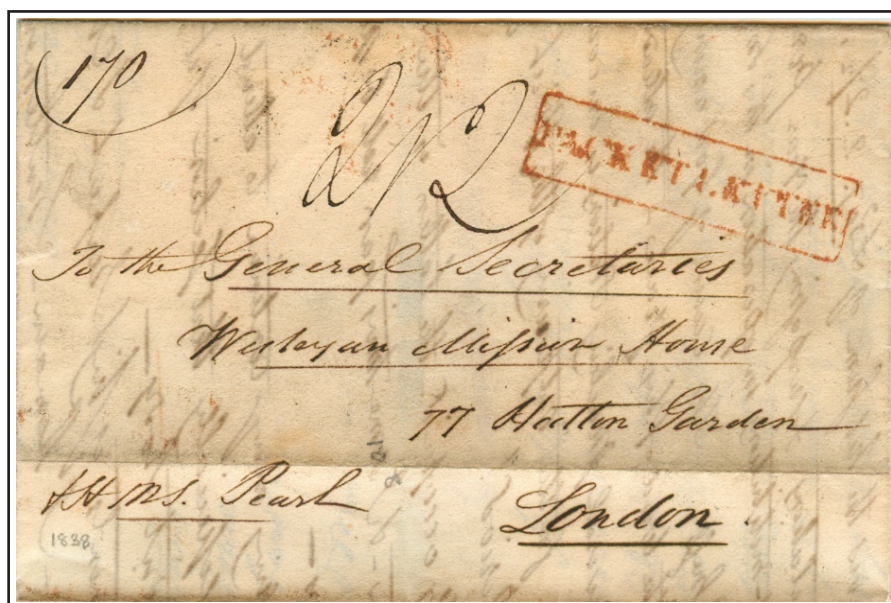 170
2/2
PACKET LETTER
To the General Secretaries
Wesleyan Mission House
77 Hatton Garden
H.M.S. Pearl
London.
1838